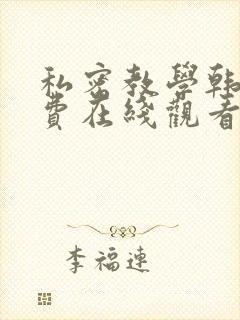 私密教學韩
費在綫觀看
李福連